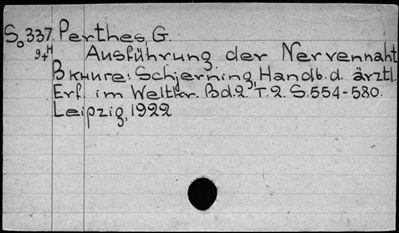 So337. Perthes, G.
9+H Ausführung der Nervennaht
В книге: Schjerning, Handb. d. ärztl.
Erf. im Weltkr. Bd.2, T.2. S.554-580.
Leipzig, 1922